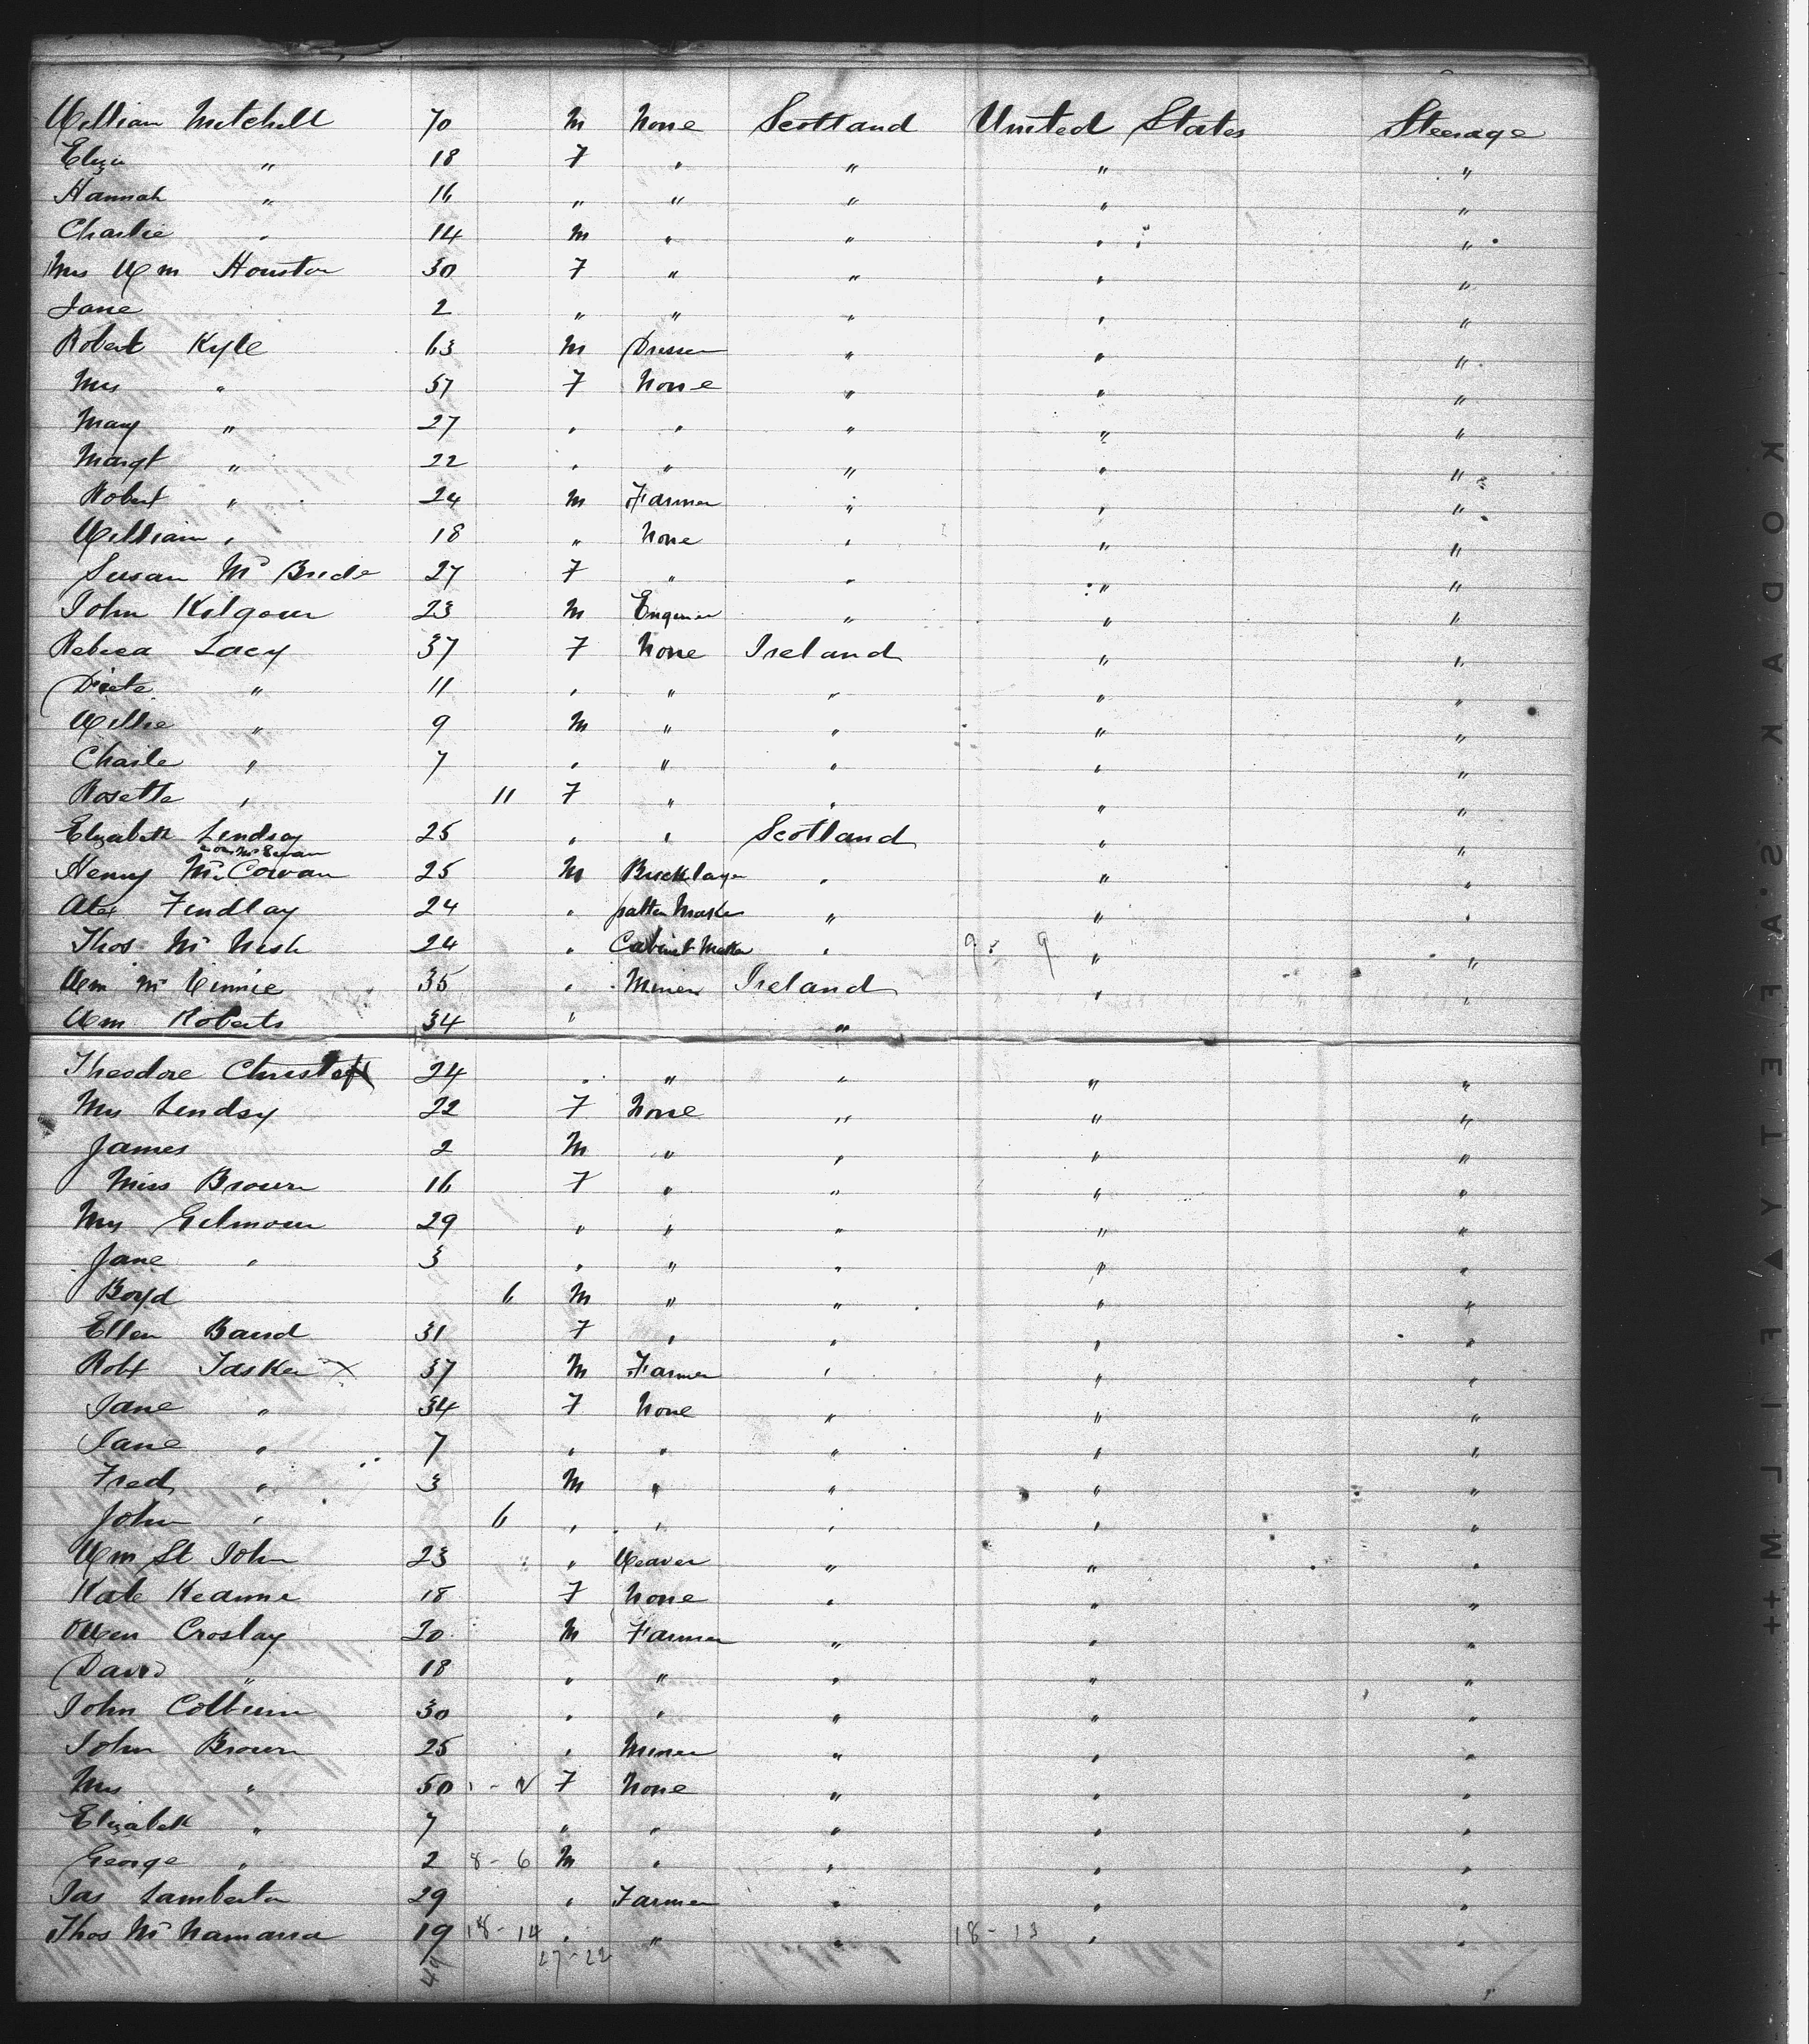 William Mitchell 70 M None Scotland United States Steerage
Eliza " 18 F " " " "
Hannah " 16 " " " " "
Charlie " 14 M " " " "
Mrs Wm Houston 30 F " " " "
Jane 2 " " " " "
Robert Kyle 63 M Dresser " " "
Mrs " 57 F None " " "
Mary " 27 " " " " "
Margt " 22 " " " " "
Robert " 24 M Farmer " " "
William " 18 " None " " "
Susan Mc Bride 27 F " " " "
John Kilgour 23 M Engineer " " "
Rebeca Lacy 37 F None Ireland " "
" 11 " " " " "
Willie " 9 M " " " "
Charlie " 7 " " " " "
Rosetta " 11 F " " " "
Elizabeth Lindsay 25 " " Scotland " "
Henry Mc Cowan 25 M Bricklayer " " "
Alex Findlay 24 " patten Maker " " "
Thos Mc Nish 24 " Cabinet Maker " 9 9 " "
Wm Mc Cinnie 35 " Miner Ireland " "
Wm Roberts 34 " "
Theodore 24 " " " " "
Mrs Lindsy 22 F None " " "
James 2 M " " " "
Miss Brown 16 F " " " "
Mrs Gilmour 29 " " " " "
Jane " 3 " " " " "
Boyd 6 M " " " "
Ellen Baird 31 F " " " "
Robt Tasker X 37 M Farmer " " "
Jane " 34 F None " " "
Jane " 7 " " " " "
Fred " 3 M " " " "
John " 6 " " " " "
Wm St John 23 " Weaver " " "
Kate Keanne 18 F None " " "
Owen Croslay 20 M Farmer " " "
David " 18 " " " " "
John Colburn 30 " " " " "
John Brown 25 " Miner " " "
Mrs " 50 F None " " "
Elizabeth " 7 " " " " "
George " 2 8-6 M " " " "
Jas Lamberton 29 " Farmer " " "
Thos Mc Namara 19 18-14 " " " 18-13 " "
27-22
49
KODAK S'AFETY ▲ FILM ++